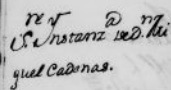 S.ⁿ Ynstanz.ᵃ de d.ⁿ Mi
guel Cadenas.